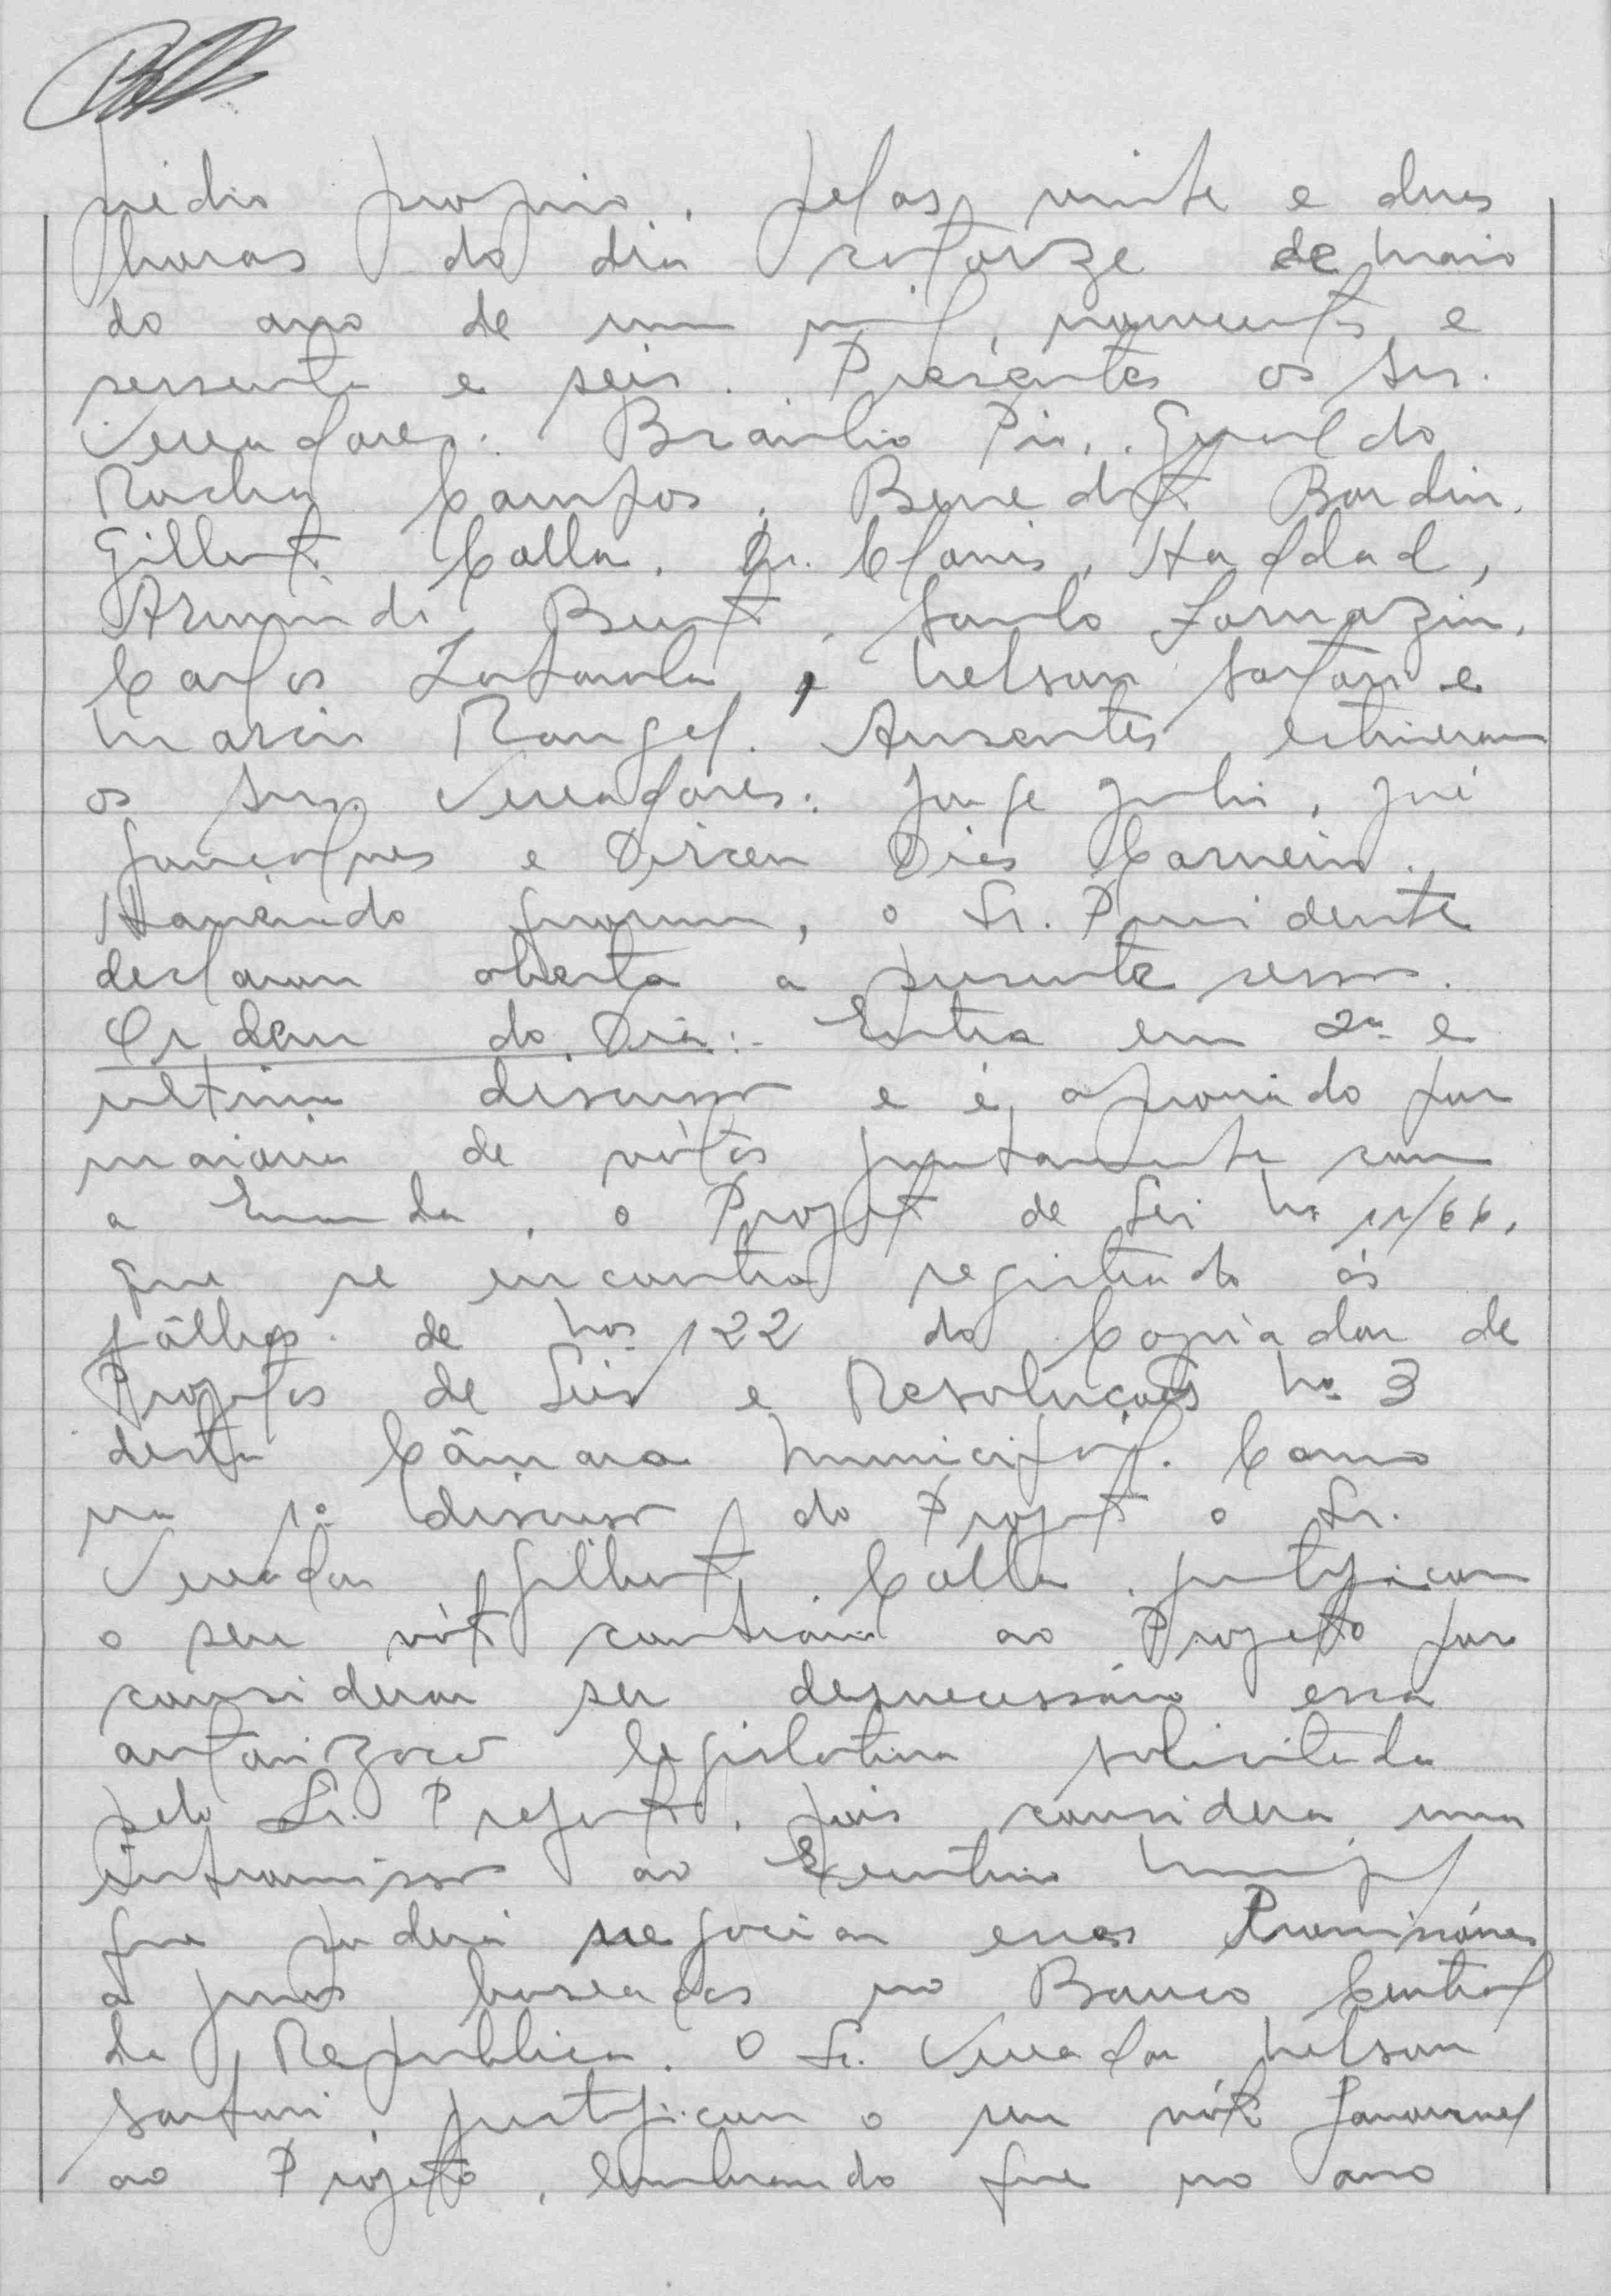 prédio proprio, pelas vinte e duas
horas do dia catorze de maio
do ano de um mil, novecentos e
sessenta e seis. Presentes os Srs.
Vereadores: Braulio Pio, Geraldo
Rocha Campos, Benedito Bordin,
Gilberto Calla, Dr. Clovis, Haddad,
Armindo Bento, Saulo Fornazin,
Carlos Zatarola, Nelson Sartori e
Marcio Rangel. Ausentes estiveram
os Srs. Vereadores: Jorge Julio, José
Gonçalves e Dirceu Dias Carneiro.
Havendo quorum, o Sr. Presidente
declarou aberta a presente sessão.
Ordem do Dia:- Entra em 2ª e
ultima discussão e é aprovado por
maioria de vótos juntamente com
a Emenda, o Projeto de Lei Nº 11/66,
que se encontra registrado ás
fôlhas de Nos 122 do Copiador de
Projetos de Leis e Resoluções Nº 3
desta Câmara Municipal. Como
na 1ª discussão do Projeto o Sr.
Vereador Gilberto Calla justificou
o seu vóto contrário ao Projeto por
considerar ser desnecessário essa
autorização legislativa solicitada
pelo Sr. Prefeito, pois considera uma
intromissão ao Executivo Municipal
que poderá negociar essas Promissórias
a juros baseados no Banco Central
da República. O Sr. Vereador Nelson
Sartori, justificou o seu vóto favoravel
ao Projeto, lembrando que no ano